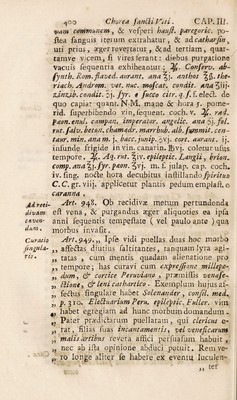 400 Chorea sancti Viti. CAP. III.
nam communem, & vesperi haust. paregoric. po-
stea sanguis iterum extrahatur, & ad catharsin,
uti prius, æger revertatur, & ad tertiam, quar-
tamve vicem, si vires ferant: diebus purgatione
vacuis sequentia exhibeantur; ℞. Conserv. ab-
synth. Rom. flaved. aurant. ana ℥j. anthos. ℥ß. the-
riach. Androm. vet. nuc. moschat. condit. ana ʒiij.
zinzib. condit. ʒj. syr. e succo citr. q. s. f. elect. de
quo capiat quant. N. M. mane & hora 5. pome-
rid. superbibendo vin. sequent. coch. v. ℞. rad.
pæon. enul. campan. imperator. angelic. ana ℥j. fol.
rut. salv. beton. chamædr. marrhub. alb. summit. cen-
taur. min. ana m. j. bacc. junip. ʒvj. cort. aurant. ij.
infunde frigide in vin. canarin. ℔vj. coletur usus
tempore. ℞. Aq. rut. ℥iv. epileptic. Langii, brion.
comp. ana ℥j. syr. pæon. ʒvj. m. f. julap. cap. coch.
iv. sing. nocte hora decubitus instillando spiritus
C. C. gr. viij. applicetur plantis pedum emplast. e
caranna.
Ad reci-
divam
caven-
dam.
Art. 948. Ob recidivæ metum pertundenda
est vena, & purgandus æger aliquoties ea ipsa
anni sequentis tempestate (vel paulo ante) qua
morbus invasit.
Curatio
singula-
ris.
Art. 949. Ipse vidi puellas duas hoc morbo
„ affectas diutius saltitantes, tanquam lyra agi-
„ tatas, cum mentis quadam alienatione pro
„ tempore; has curavi cum expressione millepe-
„ dum, & cortice Peruviano, præmissis venæse-
„ ctione, & leni cathartico. Exemplum hujus af-
„ fectus singulare habet Solenander, consil. med.
„ p. 310. Electuarium Peru. epileptic. Fuller. vim
„ habet egregiam ad hunc morbum domandum.
„ Pater prædictarum puellarum, qui clericus e-
„ rat, filias suas incantamentis, vel veneficarum
„ malis artibus revera affici persuasum habuit,
„ nec ab ista opinione abduci potuit. Rem ve-
„ ro longe aliter se habere ex eventu luculen-
„ ter